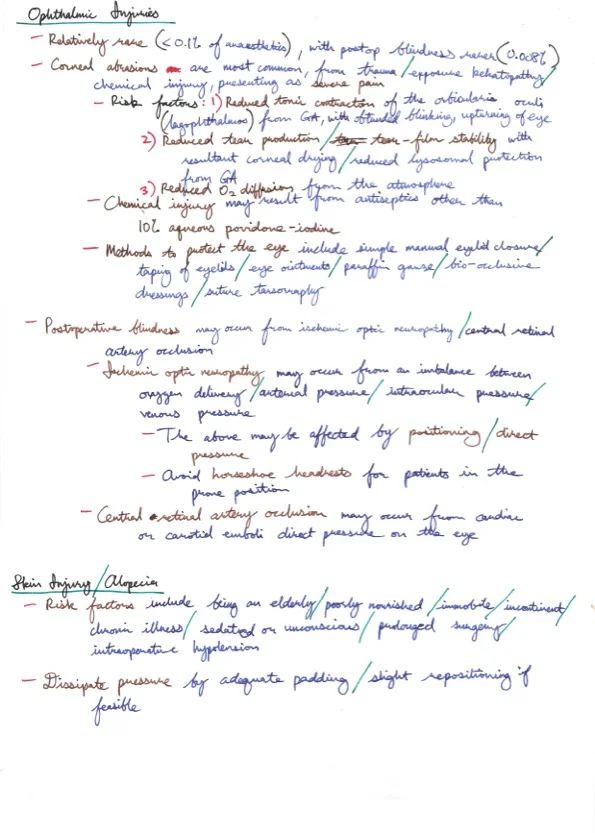 Ophthalmic Injuries
- Relatively rare (<0.1% of anaesthetics), with postop blindness rarer (0.008%)
- Corneal abrasions are most common, from trauma/exposure keratopathy/
chemical injury, presenting as severe pain
- Risk factors: 1) Reduced tonic contraction of the orbicularis oculi
(lagophthalmos) from GA, with blunted blinking, upturning of eye
2) Reduced tear production/tear-film stability with
resultant corneal drying/reduced lysosomal protection
from GA
3) Reduced O2 diffusion from the atmosphere
- Chemical injury may result from antiseptics other than
10% aqueous povidone-iodine
- Methods to protect the eye include simple manual eyelid closure/
taping of eyelids/eye ointments/paraffin gauze/bio-occlusive
dressings/suture tarsorraphy
- Postoperative blindness may occur from ischemic optic neuropathy/central retinal
artery occlusion
- Ischemic optic neuropathy may occur from an imbalance between
oxygen delivery/arterial pressure/intraocular pressure/
venous pressure
- The above may be affected by positioning/direct
pressure
- Avoid horseshoe headrests for patients in the
prone position
- Central retinal artery occlusion may occur from cardiac
or carotid emboli direct pressure on the eye
Skin Injury/Alopecia
- Risk factors include being an elderly/poorly nourished/immobile/incontinent/
chronic illness/sedated or unconscious/prolonged surgery/
intraoperative hypotension
- Dissipate pressure by adequate padding/slight repositioning if
feasible